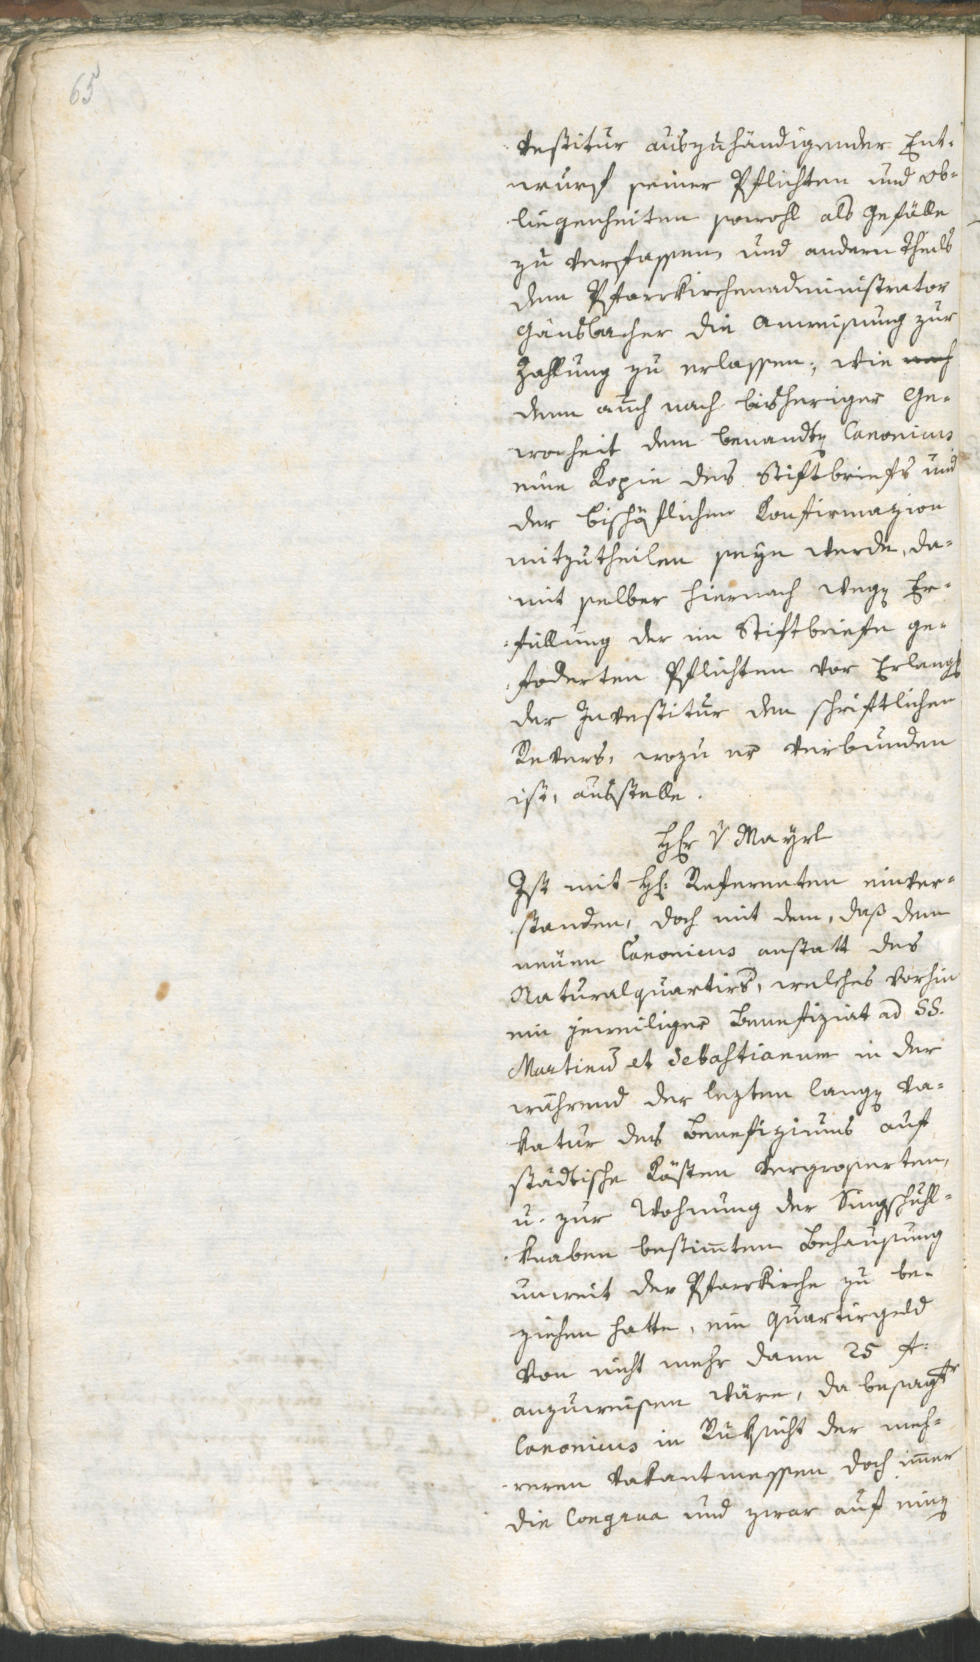 65
vestitur auszuhändigender Ent-
wurf seiner Pflichten und Ob-
liegenheiten sowohl als Gefälle
zu verfassen, und andern Theils
dem Pfarrkirchenadministrator
Gänsbacher die Anweisung zur
Zahlung zu erlassen; wie noch
dem auch nach bisheriger Ge-
wonheit dem benandtn Canonicus
eine Kopie des Stiftbriefs und
der bischöflichen Konfirmazion
mitzutheilen seyn werde, da-
mit selber hiernach wegn Er-
füllung der im Stiftbriefe ge-
foderten Pflichten vor Erlangg
der Investitur den schriftlichen
Revers, wozu er verbunden
ist, ausstelle.
HEr v Mayrl
Ist mit H: Referenten einver-
standen, doch mit dem, daß dem
neuen Canonicus anstatt des
Naturalquartirs, welches vorhin
ein jeweiliger Benefiziat ad SS.
Martinū et Sebastianum in der
während der lezten langn Va-
katur des Benefiziums auf
städtische Kösten vergroserten,
u. zur Wohnung der Singschuhl-
knaben bestim̄ten Behausung
unweit der Pfarrkirche zu be-
ziehen hatte, ein Quartirgeld
von nicht mehr dann 25 f.
anzuweisen wäre, da besagtr
Canonicus in Rüksicht der meh-
reren Vakantmessen doch im̄er
die Congrua und zwar auf einn